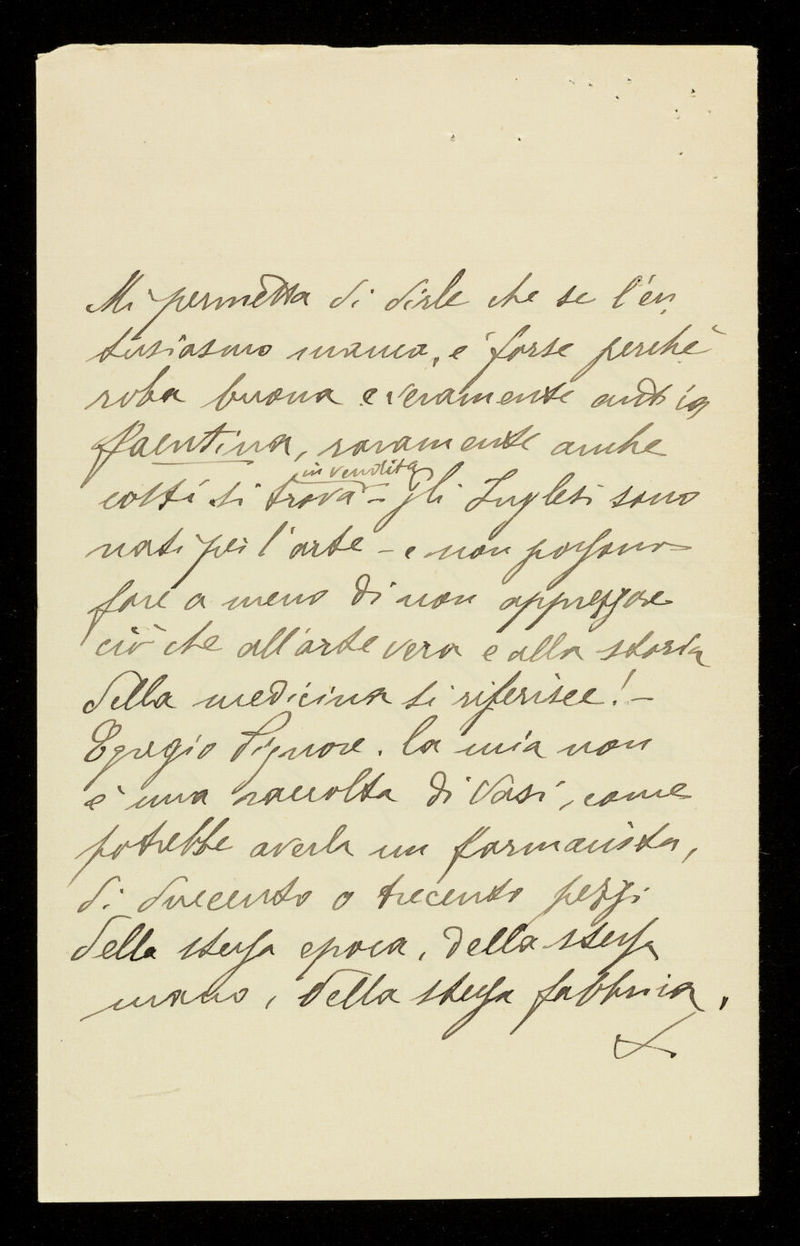 Mi permetta di dirle che se l'en
tusiasmo manca, e' forse perchè
roba buona e veramente antica
faentina, raramente anche
in vendita
costì si trova - Gli Inglesi sono
nati per l'arte - e non possono
fare a meno di non apprezzare
ciò che all'arte vera e alla storia
della medicina si riferisce! -
Egregio Signore. La mia non
è una raccolta di Vasi, come
potrebbe averla un farmacista,
di duecento o trecento pezzi
della stessa epoca, della stessa
mano, della stessa fabbrica.